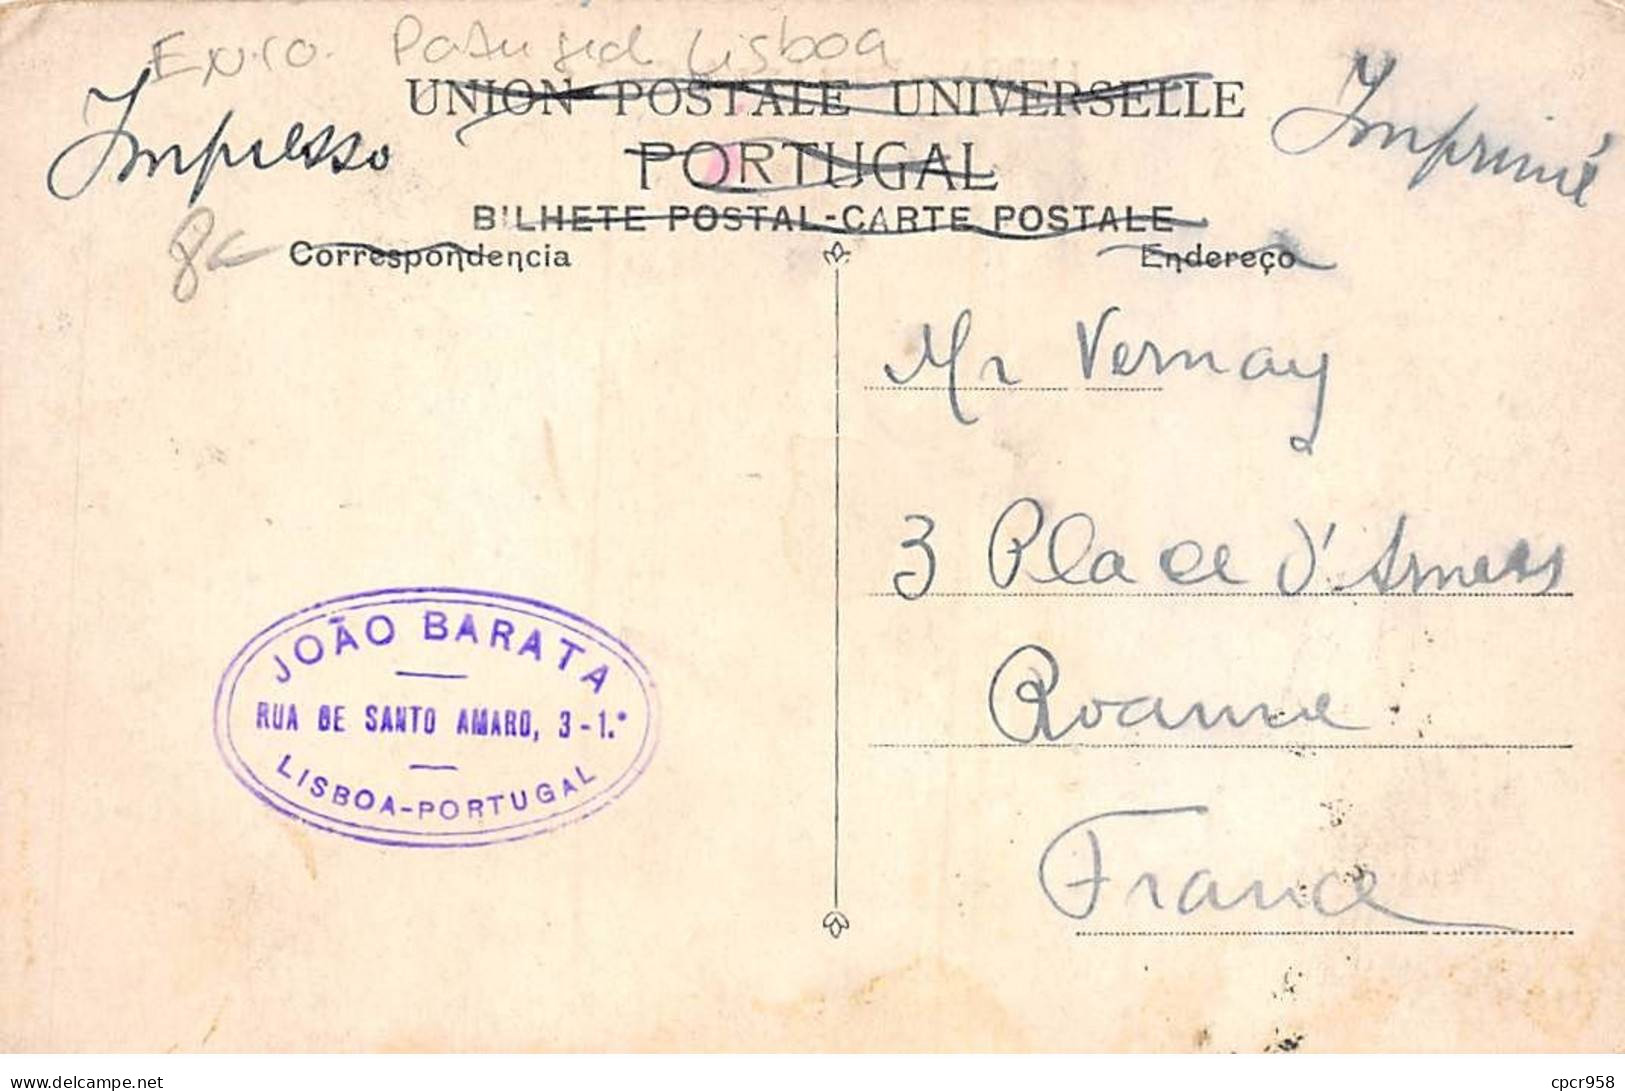 Portugal Lisboa
Impresso
UNION POSTALE UNIVERSELLE
Imprimé
PORTUGAL
BILHETE POSTAL-CARTE POSTALE
Correspondencia
Endereço
Mr Vernay
3 Place d'Armes
Roanne
France
JOÃO BARATA
RUA DE SANTO AMARO, 3-1.º
LISBOA-PORTUGAL
www.delcampe.net
cpcr958